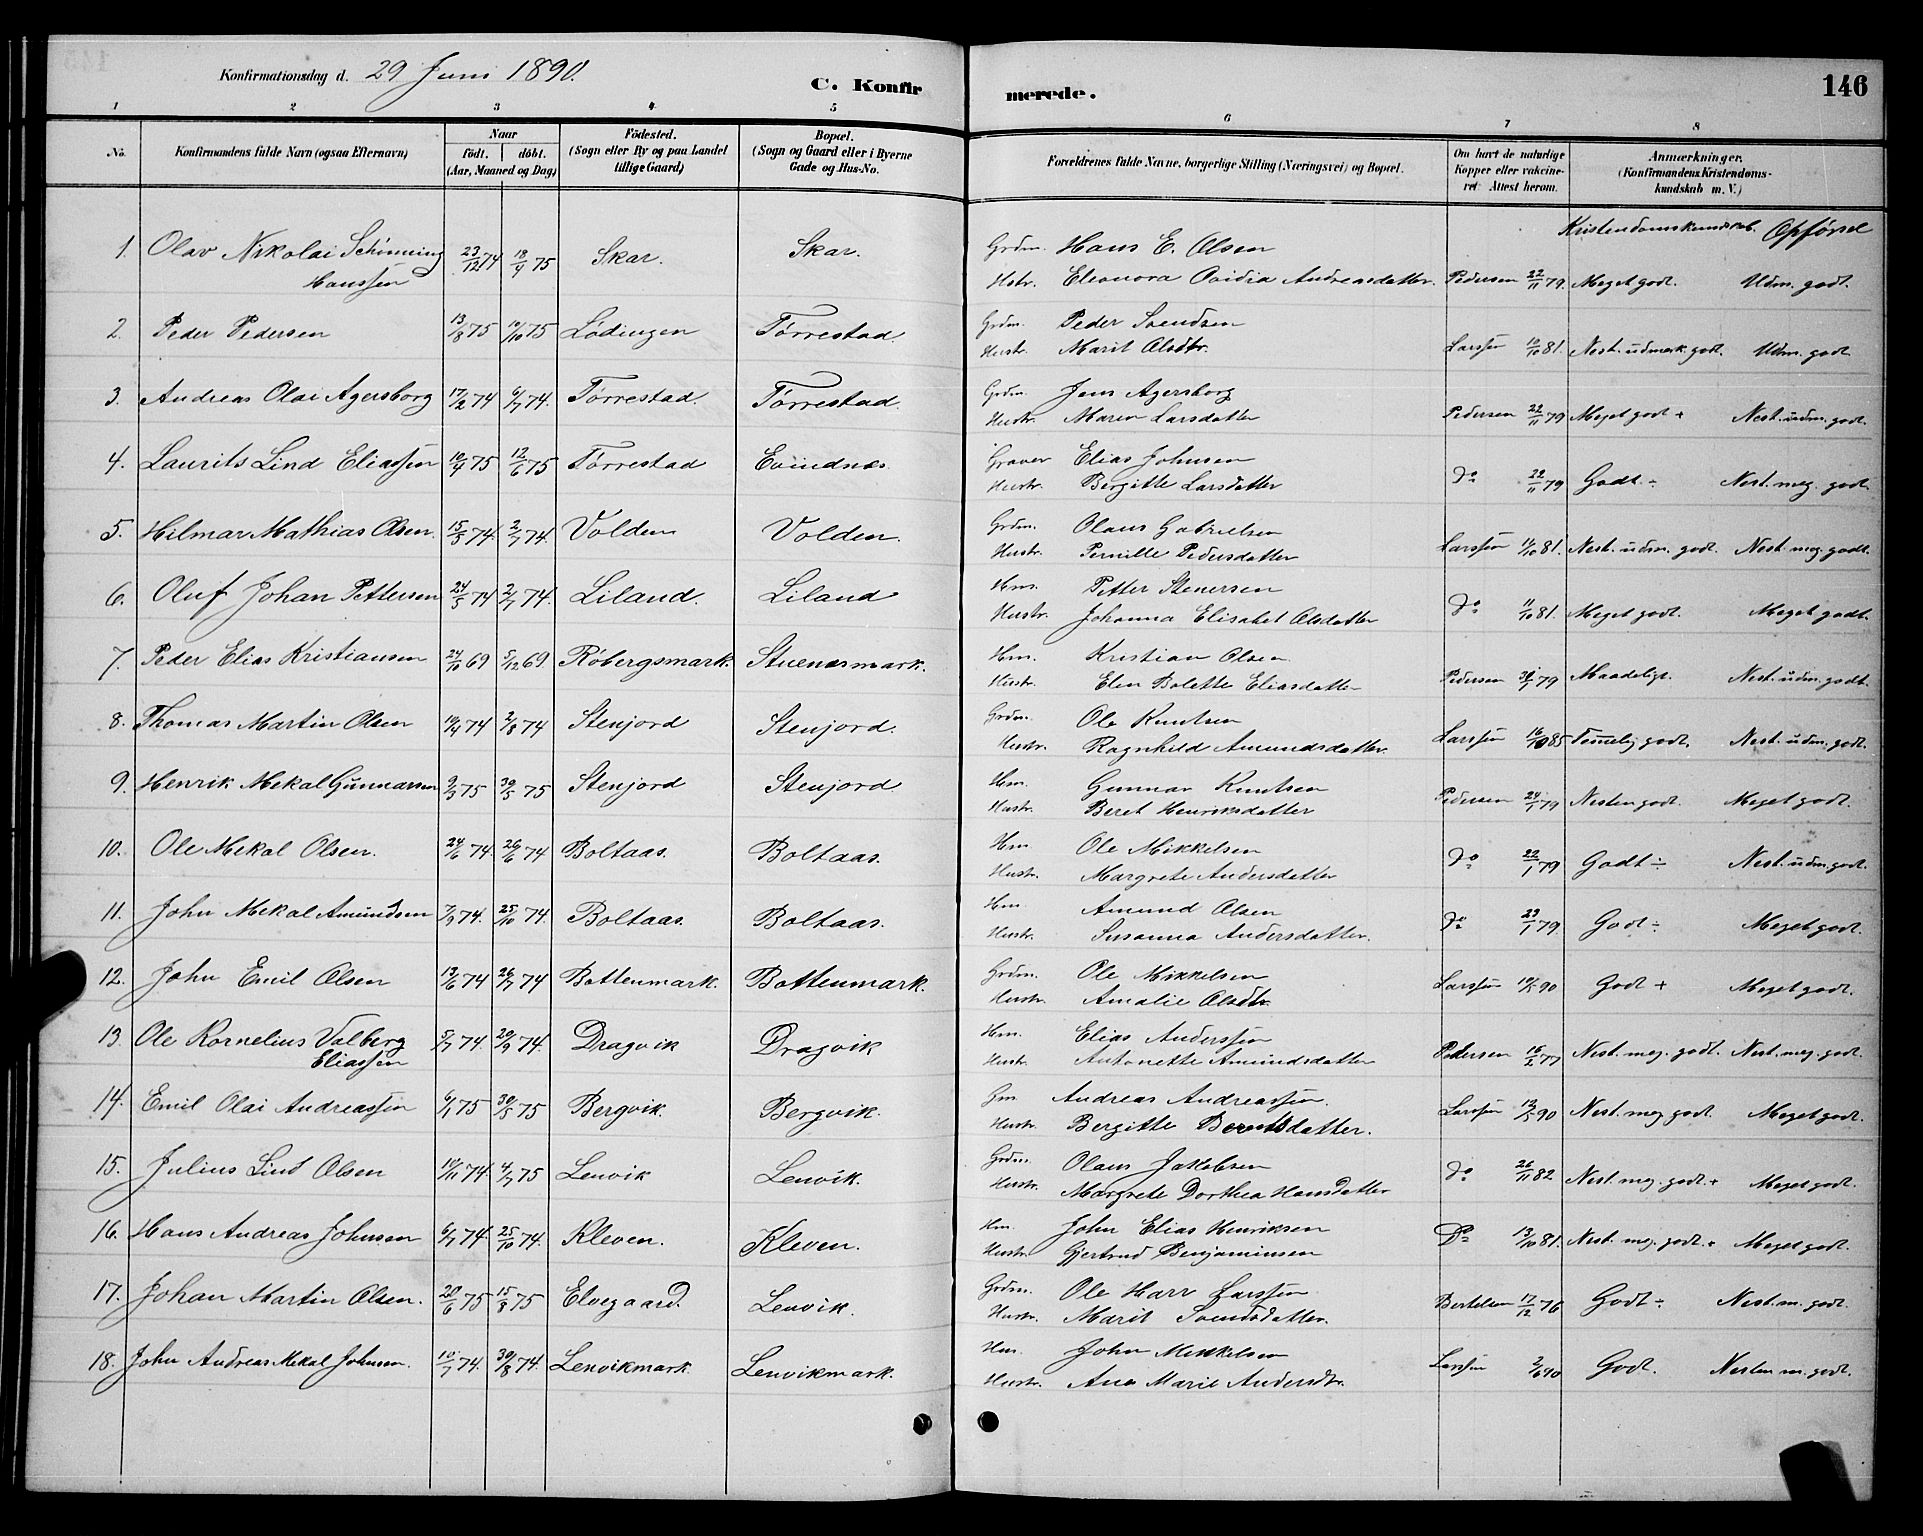 Konfirmationsdag d. 29 Juni 1890.
C. Konfirmerede.
146
1 2 3 4 5 6 7 8
No.
Konfirmandens fulde Navn (ogsaa Efternavn)
Naar
födt. | döbt.
(Aar, Maaned og Dag)
Födested.
(Sogn eller By og paa Landet
tillige Gaard)
Bopæl.
(Sogn og Gaard eller i Byerne
Gade og Hus-No.
Forældrenes fulde Navne, borgerlige Stilling (Næringsvei) og Bopæl.
Om havt de naturlige
Kopper eller vakcine-
ret. Attest herom.
Anmærkninger.
(Konfirmandens Kristendoms-
kundskab m. V.)
Kristendomskundskab. Opførsel
1. Olav Nikolai Schönning 23/12 74 18/4 75 Skar. Skar. Grdm. Hans E. Olsen
Hanssen Hstr. Eleonora Ovidia Andreasdatter. Pedersen 22/11 79. Meget godt. Udm. godt.
2. Peder Pedersen 13/8 75 10/10 75 Lødingen Tørrestad. Grdm. Peder Svendsen
Hustr. Marit Olsdtr. Larssen 10/10 81. Nest. udmerk. godt. Udm. godt
3. Andreas Olai Agersborg 17/2 74 6/7 74. Tørrestad. Tørrestad. Grdm. Jens Agersborg
Hustr. Maren Larsdatter Pedersen 22/11 79 Meget godt + Nest. udm. godt.
4. Laurits Lind Eliassen 10/4 75 12/6 75 Tørrestad Evindnes Graver Elias Johnsen
Hustr. Bergitte Larsdatter Do 22/11 79 Godt ÷ Nest. meg. godt.
5. Hilmar Mathias Olsen. 15/5 74. 2/7 74. Volden Volden. Grdm. Olaus Gabrielsen
Hustr. Pernille Pedersdatter Larssen 11/10 81. Nest. udm. godt. Nest. meg. godt.
6. Oluf Johan Pettersen 24/5 74 2/7 74. Liland. Liland Hm. Petter Stenersen
Hustr. Johanna Elisabet Olsdatter Do 11/10 81. Meget godt. Meget godt.
7. Peder Elias Kristiansen 24/10 69 5/12 69. Røbergsmark. Stuenesmark. Hm. Kristian Olsen
Hustr. Elen Bolette Eliasdatter Pedersen 31/1 79 Maadeligt. Nest. udm. godt.
8. Thomas Martin Olsen 19/4 74 2/8 74 Stenjord Stenjord. Grdm. Ole Knutsen
Hustr. Ragnhild Amundsdatter. Larssen 16/10 85 Temelig godt. Nest. udm. godt.
9. Henrik Mekal Gunnarsen 9/3 75 30/5 75 Stenjord Stenjord Hm. Gunnar Knutsen
Hustr. Beret Henriksdatter Pedersen 24/1 79 Nesten godt. Meget godt.
10. Ole Mekal Olsen. 24/6 74. 26/6 74 Boltaas. Boltaas. Hm Ole Mikkelsen
Hustr. Margrete Andersdatter Do 22/1 79 Godt ÷ Nest. udm. godt.
11. John Mekal Amundsen 7/9 74. 25/10 74. Boltaas. Boltaas. Hm Amund Olsen
Hustr. Susanna Andersdatter. Do 23/1 79. Godt ÷ Meget godt.
12. John Emil Olsen 13/6 74 26/7 74 Bottenmark. Bottenmark. Grdm. Ole Mikkelsen
Hustr. Amalie Olsdtr. Larssen 19/5 90 Godt + Meget godt.
13. Ole Kornelius Valberg 5/7 74. 20/9 74. Dragvik Dragvik Hm. Elias Anderssen
Eliassen Hustr. Antonette Amundsdatter Pedersen 16/2 77 Nest. meg. godt. Nest. meg. godt.
14. Emil Olai Andreassen 6/1 75 30/5 75 Bergvik. Bergvik. Gm. Andreas Andreassen.
Hustr. Bergitte Berntsdatter. Larssen 12/5 90 Nest. meg godt Meget godt.
15. Julius Lind Olsen 10/11 74. 4/7 75 Lenvik Lenvik. Grdm. Olaus Jakobsen
Hustr. Margrete Dorthea Hansdatter Do 26/11 82 Nest. meg. godt. + Meget godt.
16. Hans Andreas Johnsen 6/7 74. 25/10 74. Kleven. Kleven. Hm. John Elias Henriksen
Hustr. Gjertrud Benjaminsen Do 13/10 81. Nest. meg. godt. + Meget godt.
17. Johan Martin Olsen. 20/6 75 15/8 75 Elvegaard. Lenvik. Grdm. Ole Harr Larssen
Hustr. Marit Svendsdatter. Bertelsen 17/12 76 Godt ÷ Nest. m. godt.
18. John Andreas Mekal Johnsen. 10/7 74. 30/8 74. Lenvikmark. Lenvikmark. Hm. John Mikkelsen
Hustr. Ane Marie Andersdtr. Larssen 2/6 90 Godt. Nesten m. godt.